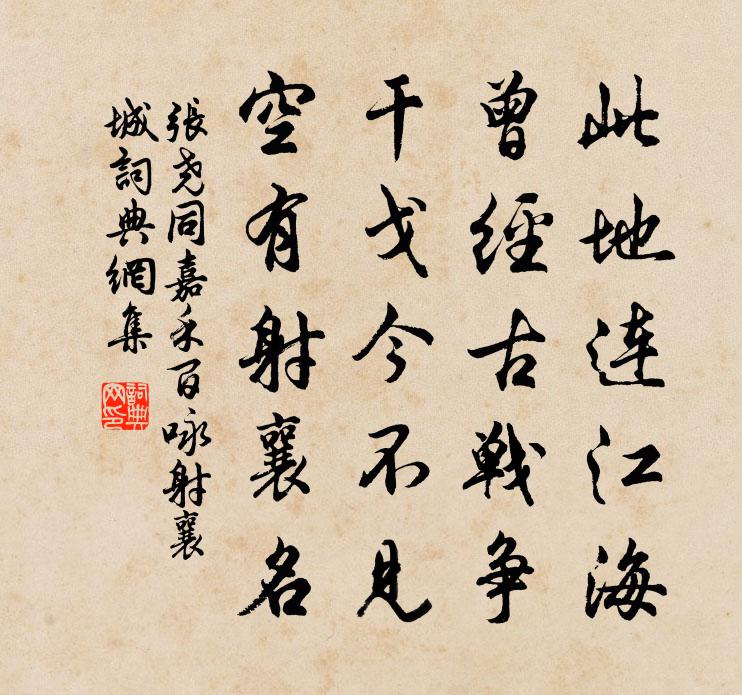 此地连江海
曾經古戦争
干戈今不见
空有射襄名
張尧同嘉禾百咏射襄
城詞典網集
詞典网印